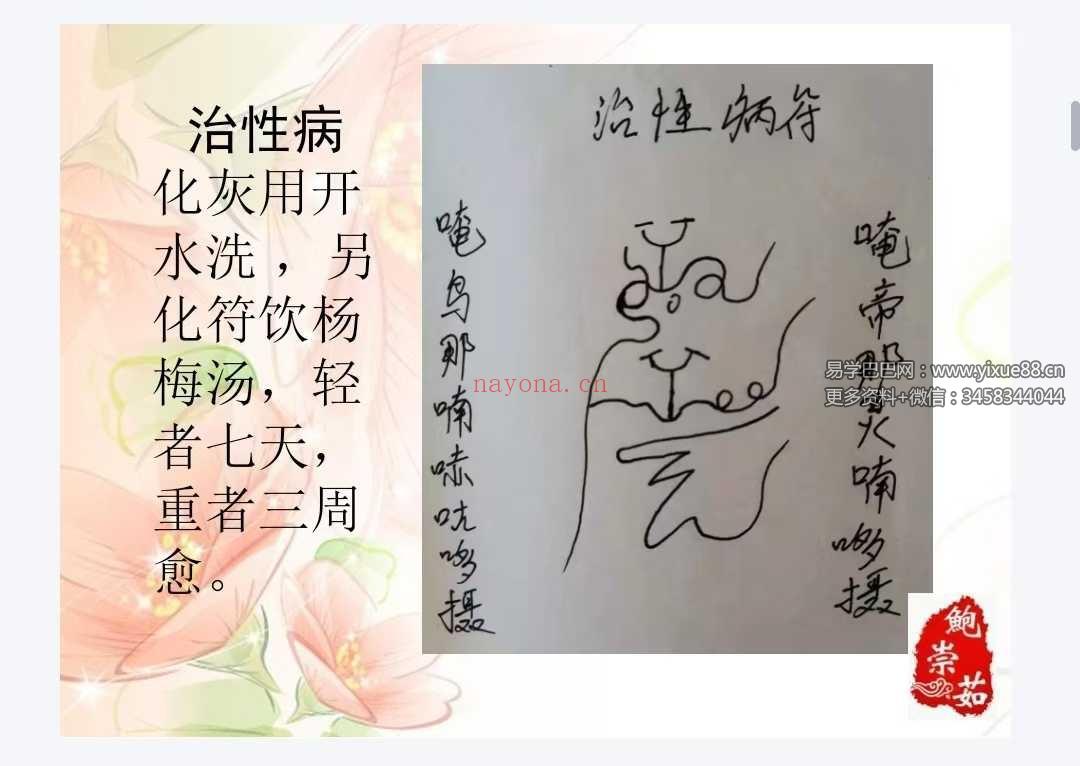 治性病
化灰用开
水洗，另
化符饮杨
梅汤，轻
者七天，
重者三周
愈。
治性病符
唵乌那喃嗦吭哆摄
唵帝那 喃哆摄
nayona.cn
易学巴巴网：www.yixue88.cn
更多资料+微信：3458344044
鲍崇茹